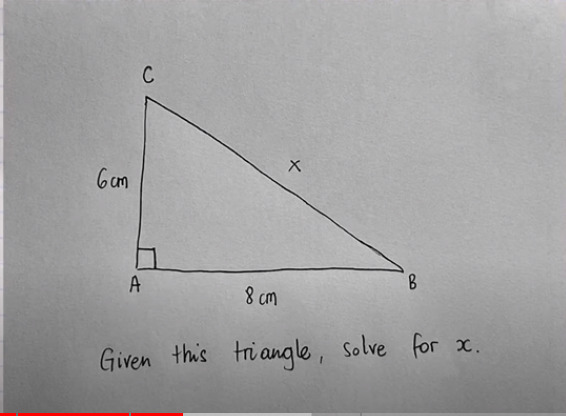 C
6cm
x
A
8 cm
B
Given this triangle, solve for x.